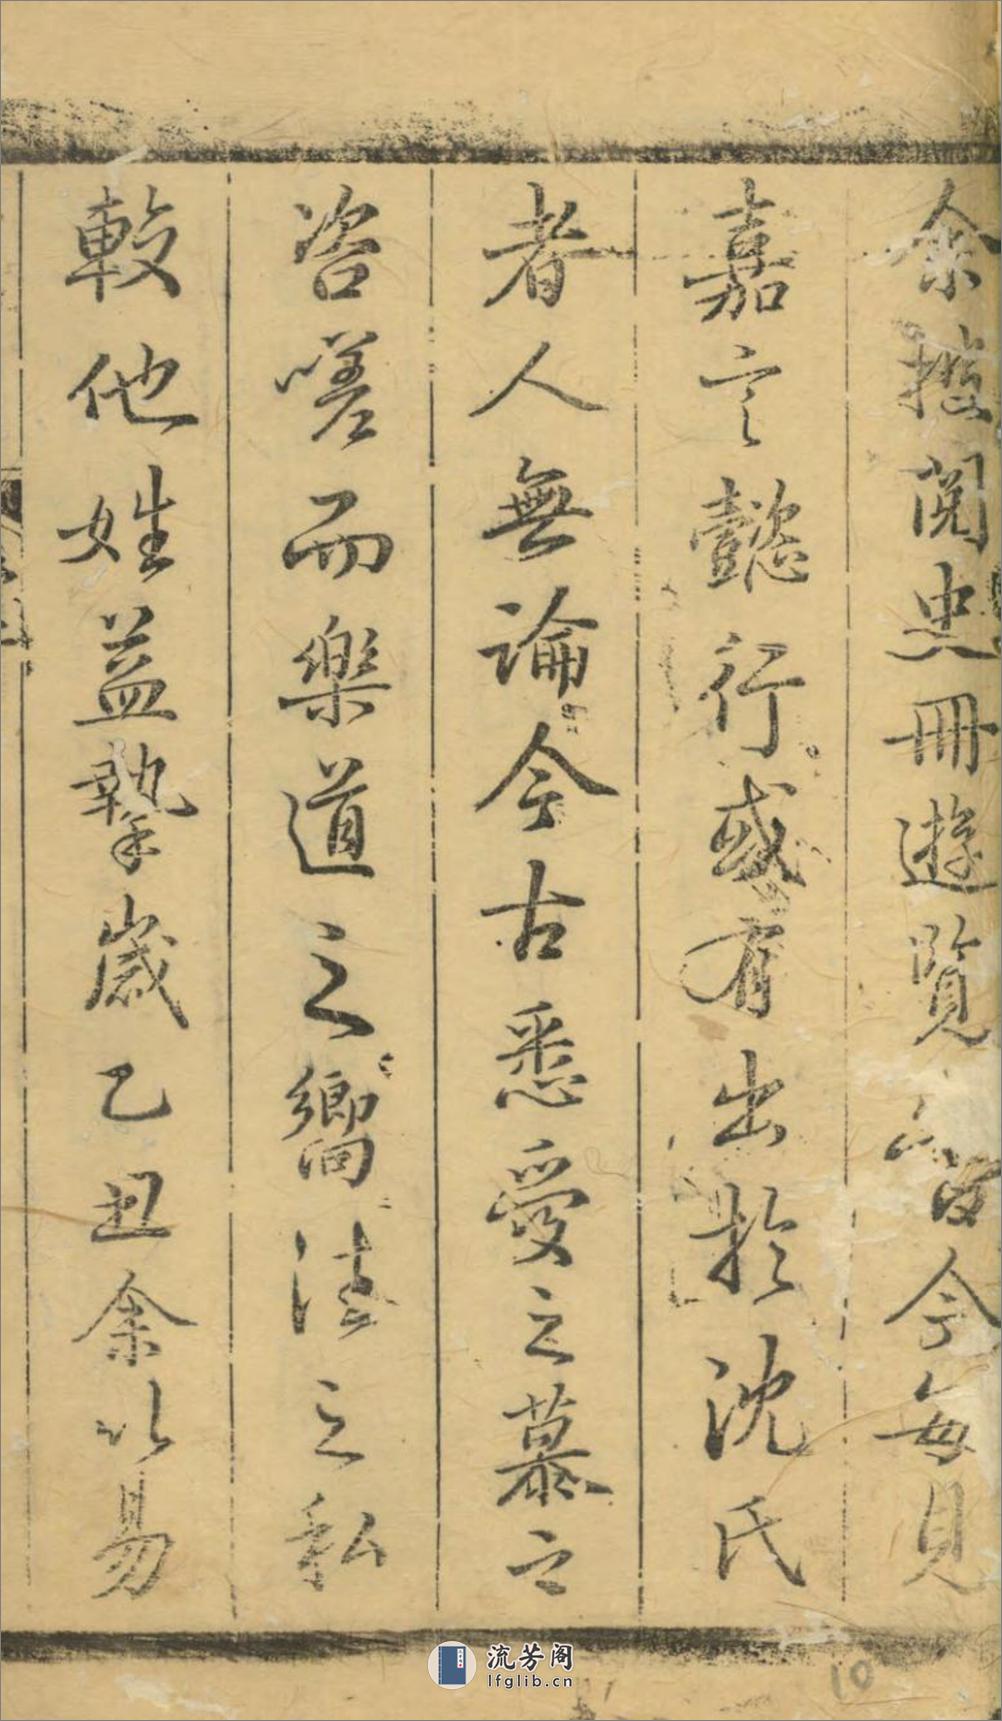 余披閱史冊遊覽古今每見
嘉言懿行或有出於沈氏
者人無論今古悉愛之慕之
咨嗟而樂道之嚮徃之私
較他姓益摯歲乙丑余以易
流芳阁
lfglib.cn
10